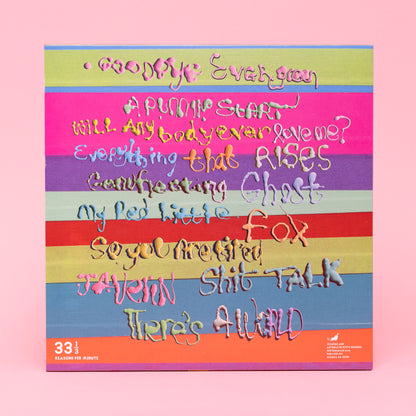 Goodbye Evergreen
A Running Start
Will Anybody ever love me?
Everything that RISES
Genuflecting Ghost
My Red Little
Fox
So you are tired
JAVELIN Shit TALK
There's A WORLD
33 1/3
REASONS PER MINUTE